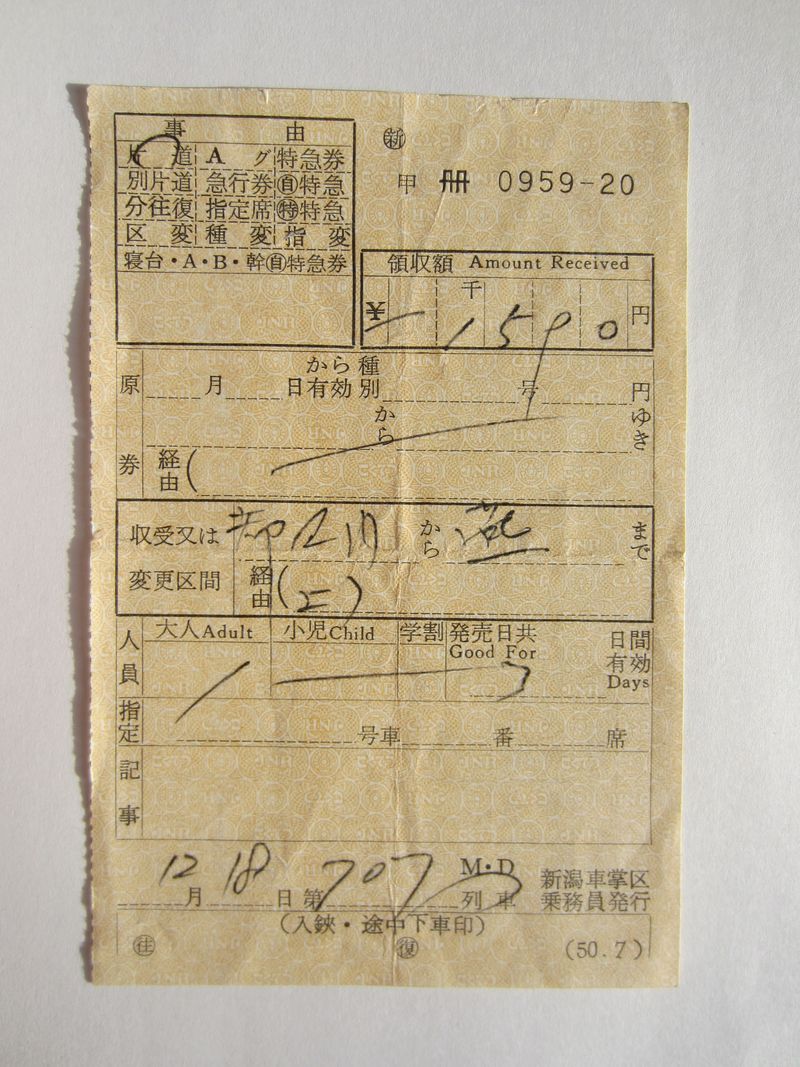 事由
㊟
片道 Aグ 特急券
甲 冊 0959-20
別片道 急行券 ㊐特急
分往復 指定席 ㊕特急
区変 種変 指変
寝台・A・B・幹㊐特急券
領収額 Amount Received
千
¥ 一 1590 円
原券
から種
月 日有効別 号 円
から ゆき
経由(
収受又は変更区間
から 燕 まで
経由(上)
人員 大人Adult 小児Child 学割 発売日共 日間
Good For 有効
1 2 Days
指定 号車 番 席
記事
12月18日第707 M・D列車 新潟車掌区
乗務員発行
(入鋏・途中下車印)
㊟ ㊟ (50.7)